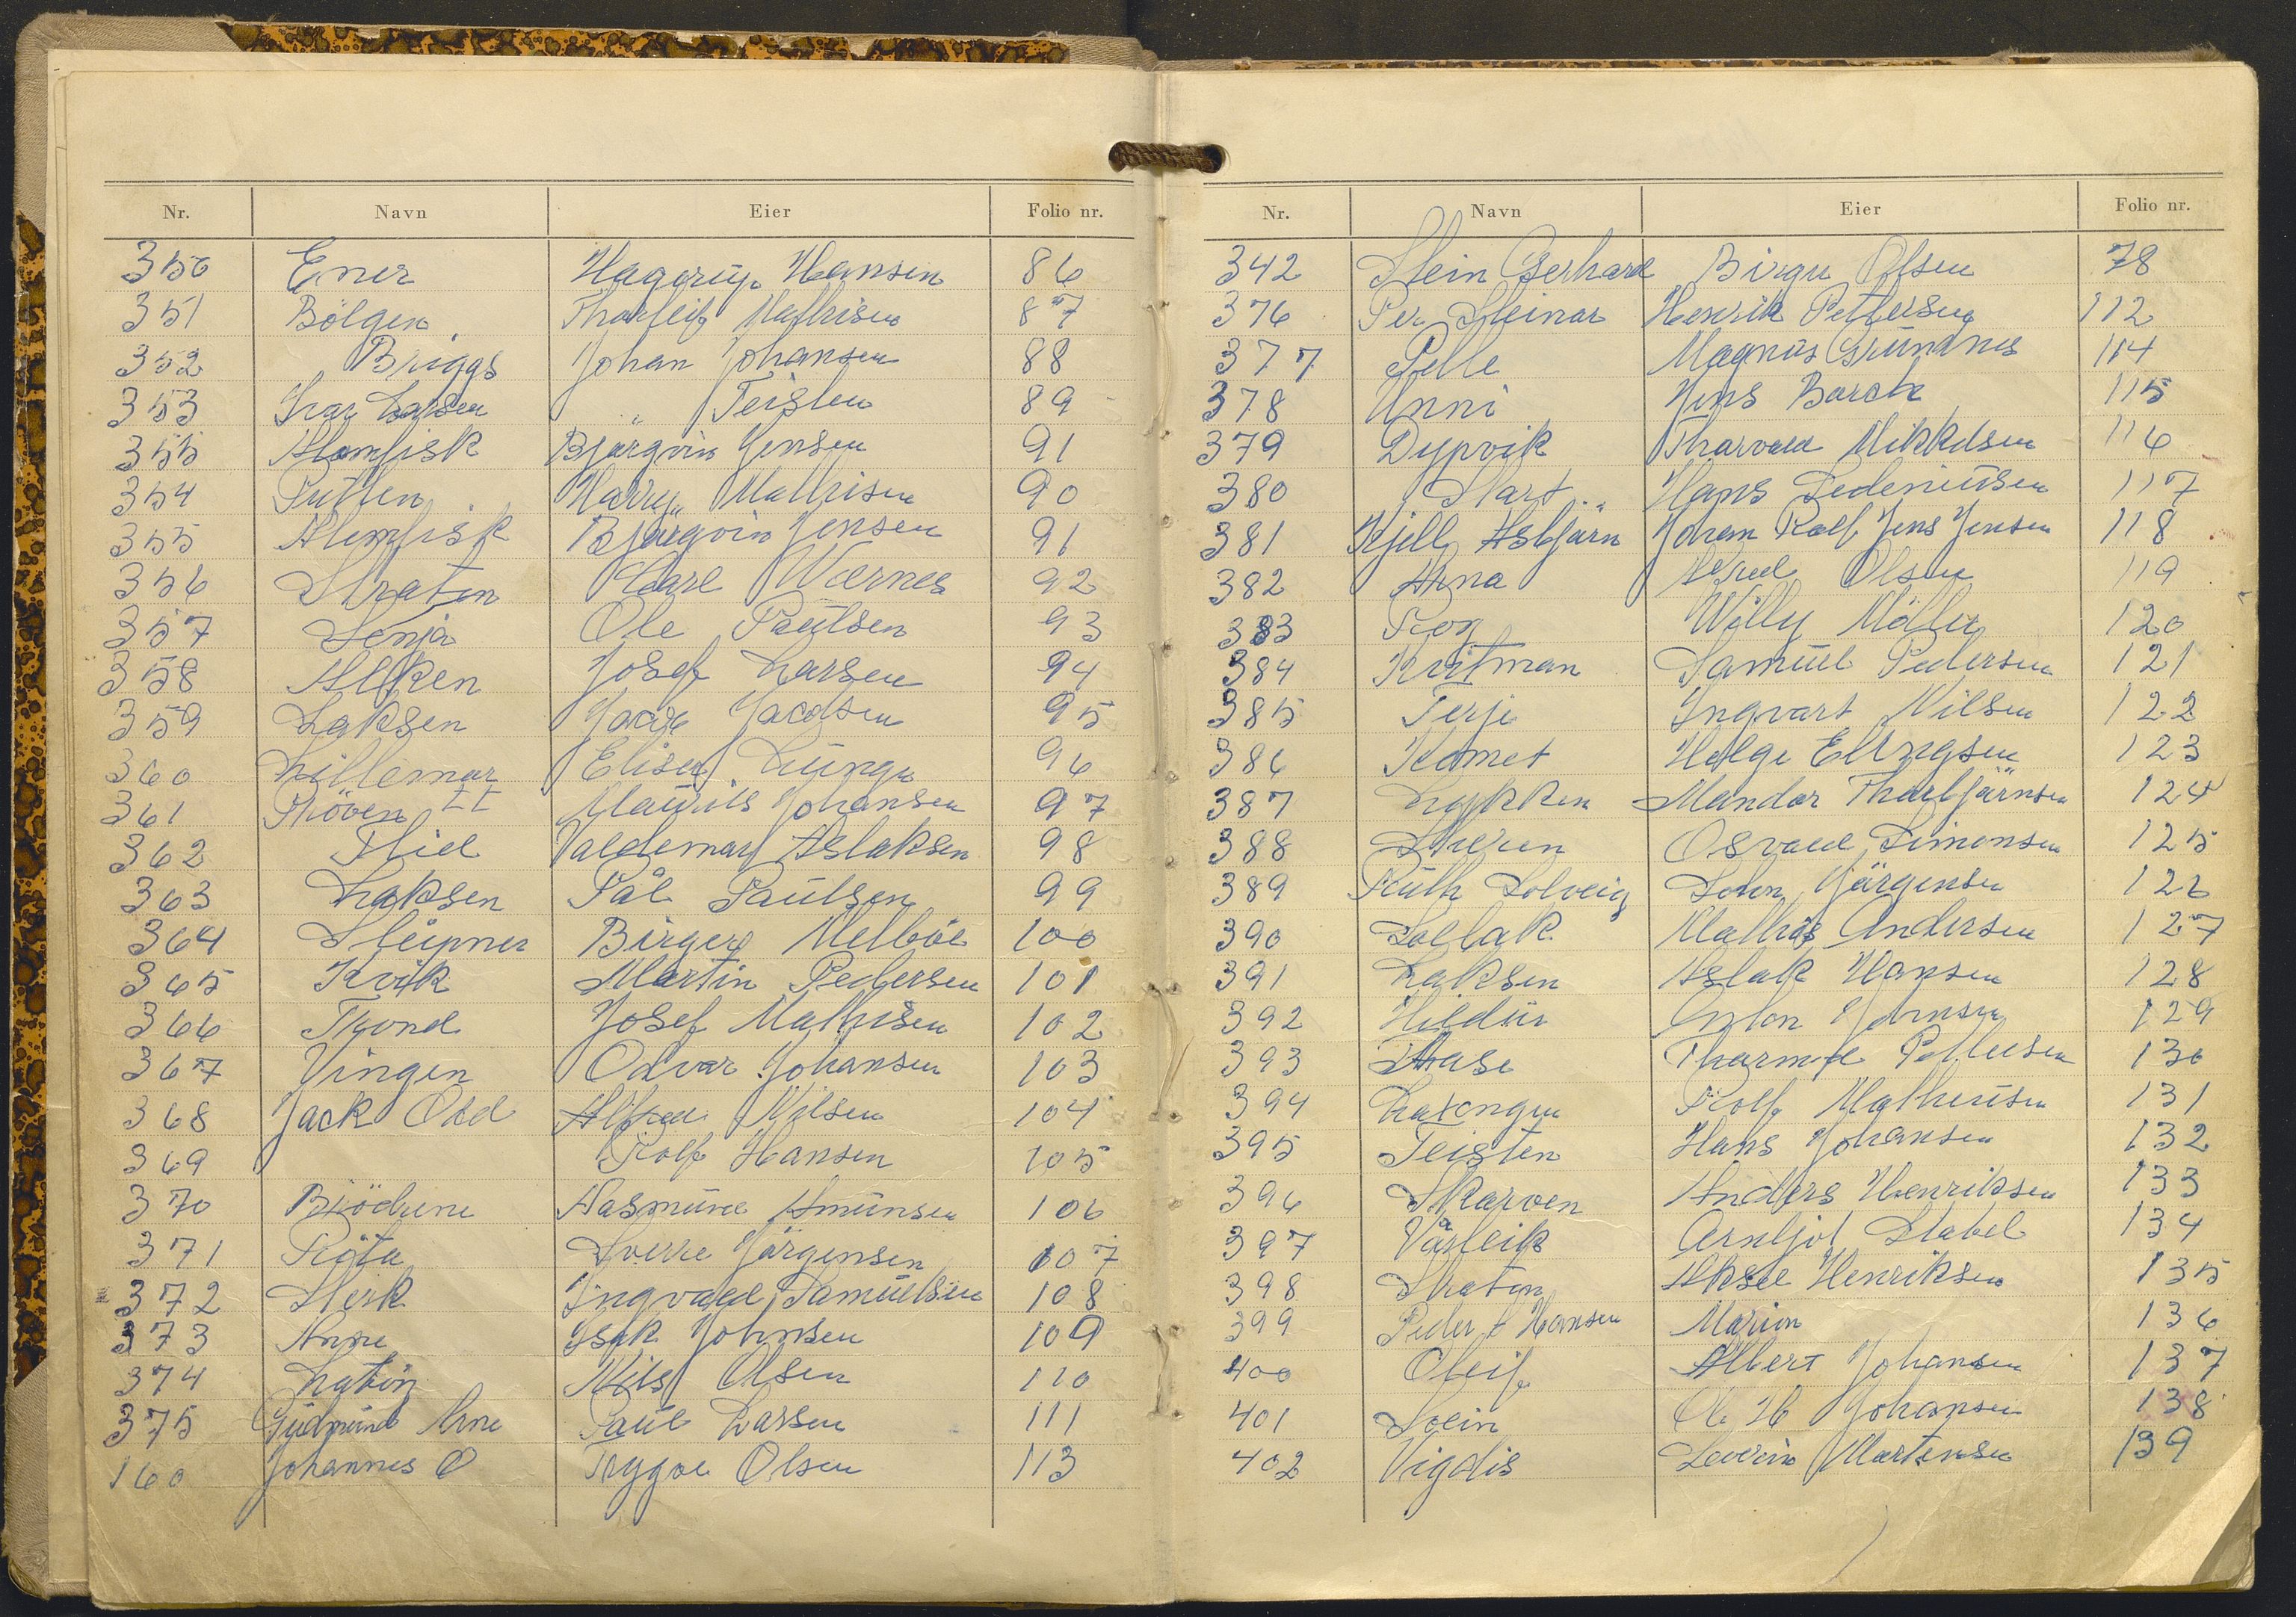 Nr. Navn Eier Folio nr.
350 Ener Hagerup Hansen 86
351 Bölgen Tharleif Mathisen 87
352 Briggs Johan Johansen 88
353 Ivar Larsen " Teisten 89
355 Bjørgvin Jensen 91
354 Putten Harry Mathisen 90
355 Bjørgvin Jensen 91
356 Straten Karl Wærnes 92
357 Senja Ole Paulsen 93
358 Alken Josef Larsen 94
359 Laksen Jacobsen 95
360 Lillemor 96
361 II Johansen 97
362 Valdemar Aslaksen 98
363 Laksen Pål Paulsen 99
364 Sleipner Birger Melböe 100
365 Kvik Martin Pedersen 101
366 Trond Josef Mathisen 102
367 Vingen Odvar Johansen 103
368 Jack Odd Alfred Nilsen 104
369 Rolf Hansen 105
370 Brödrene Aasmund Amunsen 106
371 Röta Sverre Jörgensen 107
372 Sterk Ingvald Samuelsen 108
373 Anne Isak Johnsen 109
374 Nils Olsen 110
375 Gudmund Arne Paul Larsen 111
160 Johannes O Tryggve Olsen 113
Nr. Navn Eier Folio nr.
342 Stein Gerhard Birger Olsen 78
376 Per Steinar Henrik Pettersen 112
377 Pelle Magnus 114
378 Unni Jens Barck 115
379 Dypvik Tharvald Mikkelsen 116
380 Start Hans Pedeniusen 117
381 Kjell Asbjørn Johan Rolf Jens Jensen 118
382 Arna Olsen 119
383 Roy Willy Möller 120
384 Samuel Pedersen 121
385 Terje Ingvart Nilsen 122
386 Komet Helge Ellingsen 123
387 Lykken Mandor Tharbjørnsen 124
388 Osvald Simonsen 125
389 Ruth Solveig Jörgensen 126
390 Solbak Mathis Andersen 127
391 Laksen Aslak Hansen 128
392 Hildur Anton Johnsen 129
393 Aase Tharmod Pettersen 130
394 Rolf Matheusen 131
395 Teisten Hans Johansen 132
396 Skarven Anders Henriksen 133
397 Vårleik Arnljot Stabel 134
398 Skaten Aksel Henriksen 135
399 Peder Hansen Marion 136
400 Oleif Albert Johansen 137
401 Svein Ole H Johansen 138
402 Vigdis Severin Martinsen 139